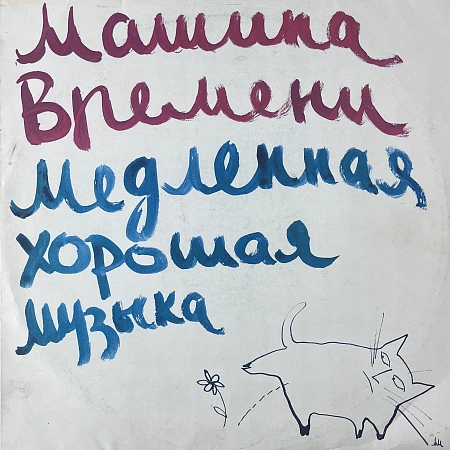 Машина
Времени
медленная
хорошая
музыка